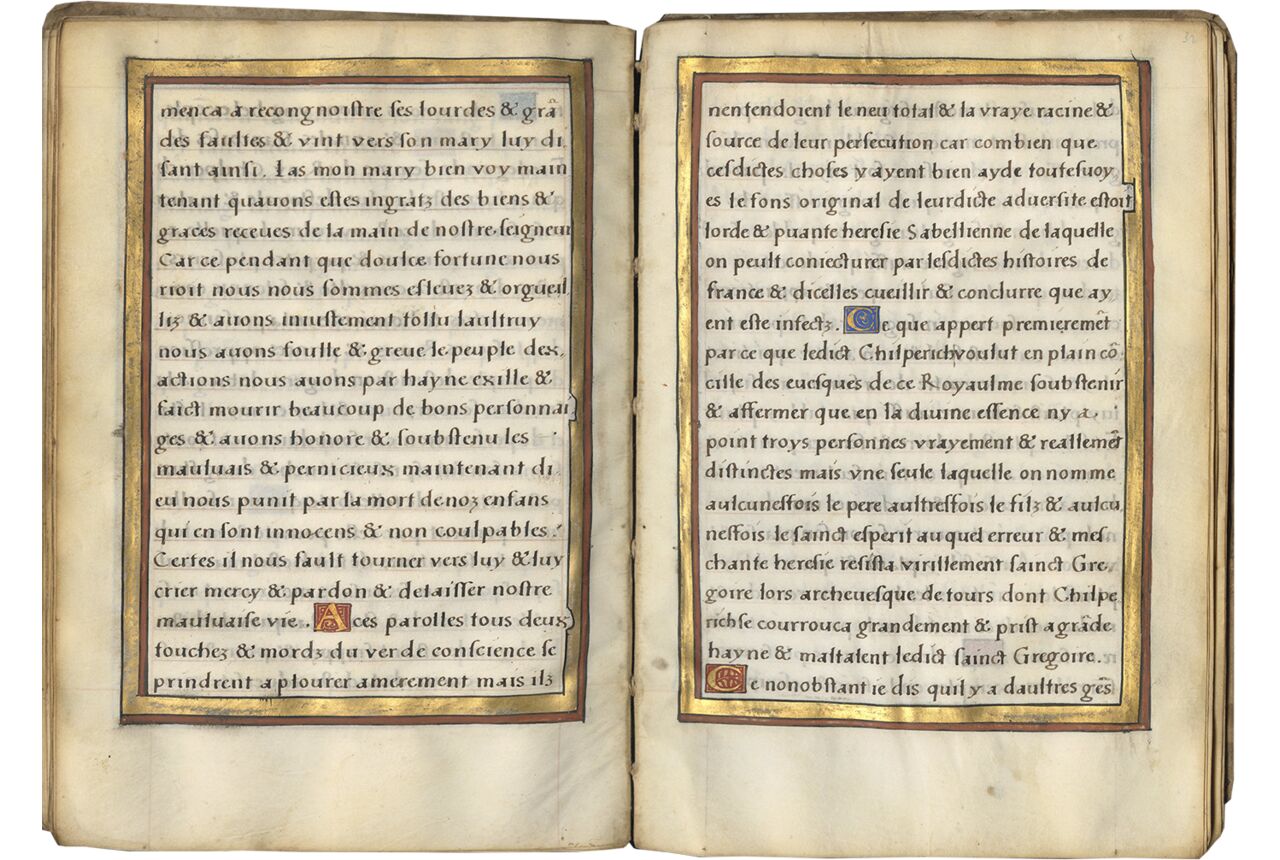 menca a recongnoistre ses lourdes & grã
des faultes & vint vers son mary luy di
sant ainsi. Las mon mary bien voy main
tenant quauons estes ingratz des biens &
graces receues de la main de nostre seigneur
Car ce pendant que doulce fortune nous
rioit nous nous sommes esleuez & orgueil
liz & auons iniustement tollu laultruy
nous auons foulle & greue le peuple dex,
actions nous auons par hayne exille &
faict mourir beaucoup de bons personnai
ges & auons honore & soubstenu les
mauluais & pernicieux maintenant di
eu nous punit par la mort de noz enfans
qui en sont innocens & non coulpables.
Certes il nous fault tourner vers luy & luy
crier mercy & pardon & delaisser nostre
mauluaise vie. A ces parolles tous deux
touchez & mordz du ver de conscience se
prindrent a plourer amerement mais ilz
32
nentendoient le neu total & la vraye racine &
source de leur persecution car combien que
cesdictes choses y ayent bien ayde toutesuoy
es le fons original de leurdicte aduersite estoit
lorde & puante heresie Sabellienne de laquelle
on peult coniecturer par lesdictes histoires de
france & dicelles cueillir & conclurre que ay
ent este infectz. Ce que appert premieremẽt
par ce que ledict Chilperich voulut en plain cõ
cille des euesques de ce Royaulme soubstenir
& affermer que en la diuine essence ny a
point troys personnes vrayement & reallemẽt
distinctes mais vne seule laquelle on nomme
aulcunesfois le pere aultresfois le filz & aulcu
nesfois le sainct esperit auquel erreur & mes
chante heresie resista virillement sainct Gre,
goire lors archeuesque de tours dont Chilpe
rich se courrouca grandement & prist a grãde
hayne & maltalent ledict sainct Gregoire.
Ce nonobstant ie dis quil y a daultres gẽs